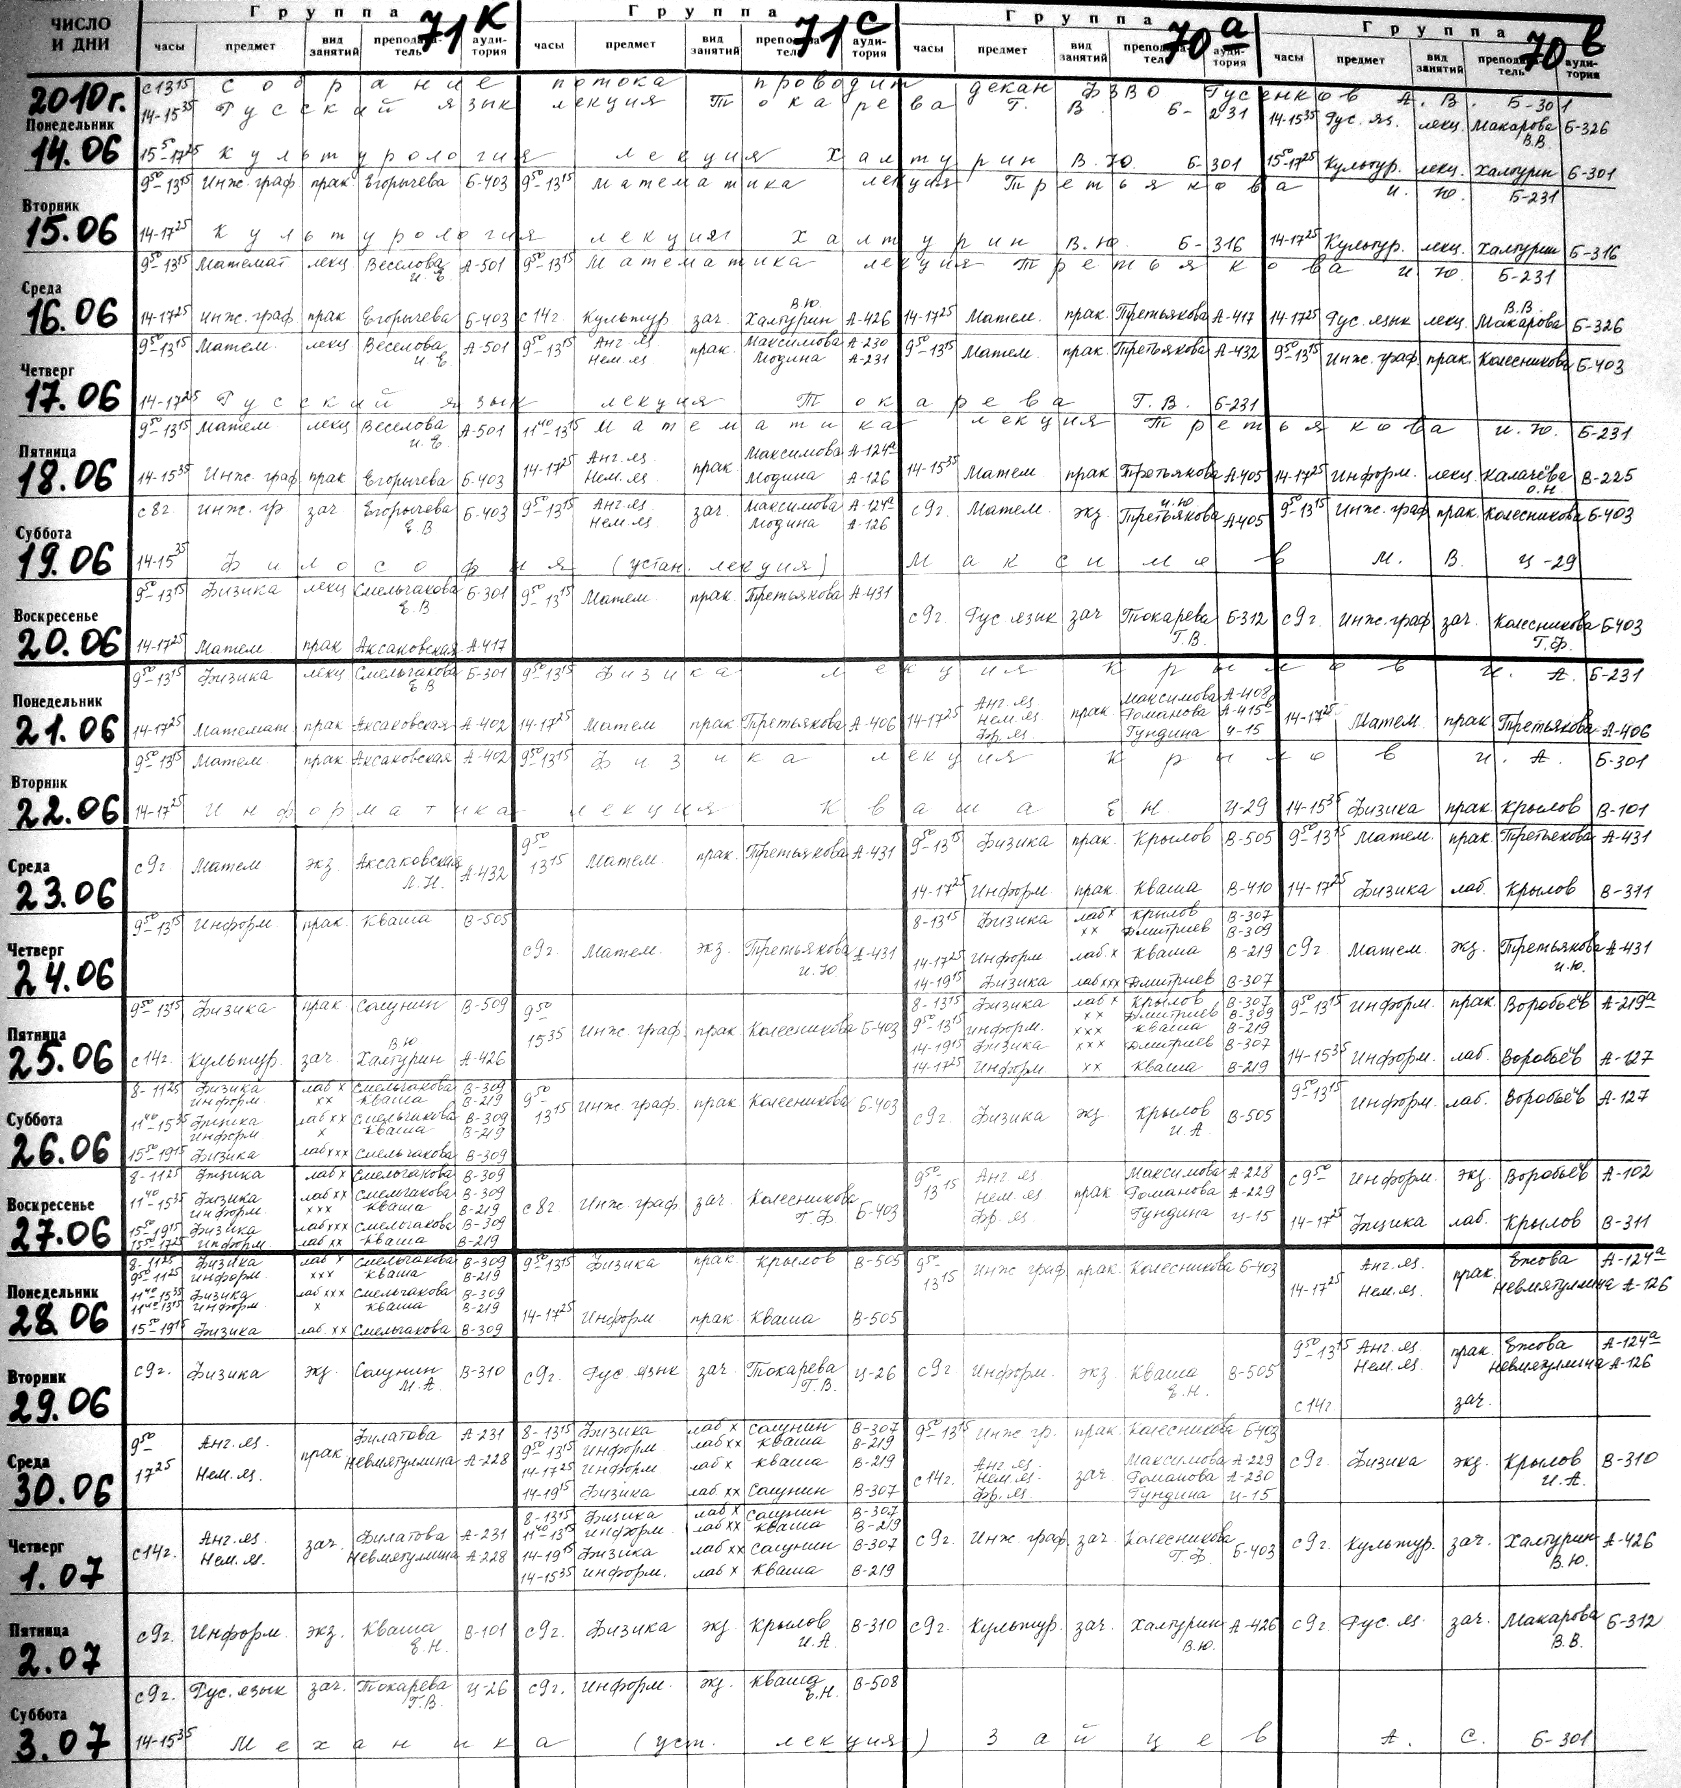 ЧИСЛО И ДНИ
Группа 71К Группа 71С Группа 70а Группа 70в
часы предмет вид занятий преподаватель аудитория часы предмет вид занятий преподаватель аудитория часы предмет вид занятий преподаватель аудитория часы предмет вид занятий преподаватель аудитория
2010г.
с 13¹⁵ собрание потока проводит декан ФЗВО Гусенков А.В. Б-301
Понедельник 14.06
14-15³⁵ Русский язык лекция Токарева Г.В. Б-231 14-15³⁵ Рус. яз. лекц. Макарова В.В. Б-326
15⁵⁰-17²⁵ Культурология лекция Халтурин В.Ю. Б-301 15⁵⁰-17²⁵ Культур. лекц. Халтурин Б-301
Вторник 15.06
9⁵⁰-13¹⁵ Инж. граф прак. Егорычева Б-403 9⁵⁰-13¹⁵ Математика лекция Третьякова И.Ю. Б-231
14-17²⁵ Культурология лекция Халтурин В.Ю. Б-316 14-17²⁵ Культур. лекц. Халтурин Б-316
Среда 16.06
9⁵⁰-13¹⁵ Математ лекц Веселова И.Е. А-501 9⁵⁰-13¹⁵ Математика лекция Третьякова И.Ю. Б-231
14-17²⁵ Инж. граф прак Егорычева Б-403 с 14г. Культур зач. Халтурин В.Ю. А-426 14-17²⁵ Матем. прак. Третьякова А-417 14-17²⁵ Рус. язык лекц. Макарова В.В. Б-326
Четверг 17.06
9⁵⁰-13¹⁵ Матем. лекц Веселова И.Е. А-501 9⁵⁰-13¹⁵ Анг. яз Нем. яз прак. Максимова Модина А-230 А-231 9⁵⁰-13¹⁵ Матем. прак. Третьякова А-432 9⁵⁰-13¹⁵ Инж. граф. прак. Колесникова Б-403
14-17²⁵ Русский язык лекция Токарева Г.В. Б-231
Пятница 18.06
9⁵⁰-13¹⁵ Матем лекц Веселова И.Е. А-501 11⁴⁰-13¹⁵ Математика лекция Третьякова И.Ю. Б-231
14-15³⁵ Инж. граф прак Егорычева Б-403 14-17²⁵ Анг. яз Нем. яз. прак. Максимова Модина А-124ᵃ А-126 14-15³⁵ Матем прак Третьякова А-405 14-17²⁵ Информ. лекц. Калачёва О.Н. В-225
Суббота 19.06
с 8г. Инж. гр зач. Егорычева Е.В Б-403 9⁵⁰-13¹⁵ Анг. яз Нем. яз зач. Максимова Модина А-124ᵃ А-126 с 9г. Матем. экз. Третьякова И.Ю А-405 9⁵⁰-13¹⁵ Инж. граф прак. Колесникова Б-403
14-15³⁵ Философия (устан. лекция) Максимов М.В. Ц-29
Воскресенье 20.06
9⁵⁰-13¹⁵ Физика лекц Смельчакова Е.В Б-301 9⁵⁰-13¹⁵ Матем. прак. Третьякова А-431
14-17²⁵ Матем. прак Аксаковская А-417 с 9г. Рус язык зач Токарева Г.В. Б-312 с 9г. Инж. граф зач. Колесникова Г.Ф. Б-403
Понедельник 21.06
9⁵⁰-13¹⁵ Физика лекц Смельчакова Е.В Б-301 9⁵⁰-13¹⁵ Физика лекция Крылов И.А. Б-231
14-17²⁵ Математ. прак Аксаковская А-402 14-17²⁵ Матем прак Третьякова А-406 14-17²⁵ Анг. яз Нем. яз. Фр. яз прак. Максимова Романова Гундина А-408 А-415ᵇ Ц-15 14-17²⁵ Матем. прак Третьякова А-406
Вторник 22.06
9⁵⁰-13¹⁵ Матем. прак Аксаковская А-402 9⁵⁰-13¹⁵ Физика лекция Крылов И.А. Б-301
14-17²⁵ Информатика лекция Кваша Е.Н. Ц-29 14-15³⁵ Физика прак Крылов В-101
Среда 23.06
с 9г. Матем экз. Аксаковская Л.Н. А-432 9⁵⁰-13¹⁵ Матем. прак. Третьякова А-431 9⁵⁰-13¹⁵ Физика прак. Крылов В-505 9⁵⁰-13¹⁵ Матем. прак. Третьякова А-431
14-17²⁵ Информ. прак. Кваша В-410 14-17²⁵ Физика лаб. Крылов В-311
Четверг 24.06
9⁵⁰-13¹⁵ Информ прак. Кваша В-505 с 9г. Матем. экз. Третьякова И.Ю А-431 с 9г. Матем экз. Третьякова И.Ю. А-431
8-13¹⁵ Физика лаб х Крылов В-307
хх Дмитриев В-309
14-17²⁵ Информ лаб. х Кваша В-219
14-19¹⁵ Физика лаб ххх Дмитриев В-307
Пятница 25.06
9⁵⁰-13¹⁵ Физика прак. Солунин В-509 9⁵⁰-15³⁵ Инж. граф прак Колесникова Б-403 9⁵⁰-13¹⁵ Информ. прак. Воробьёв А-219ᵃ
8-13¹⁵ Физика лаб х Крылов В-307
хх Дмитриев В-309
9⁵⁰-13¹⁵ информ. ххх Кваша В-219
14-19¹⁵ Физика ххх Дмитриев В-307
14-17²⁵ Информ хх Кваша В-219
с 14г. Культур. зач. Халтурин В.Ю А-426 14-15³⁵ Информ. лаб. Воробьёв А-127
Суббота 26.06
8-11²⁵ Физика лаб х Смельчакова В-309
информ. хх Кваша В-219
11⁴⁰-15³⁵ Физика лаб хх Смельчакова В-309
информ х Кваша В-219
15⁵⁰-19¹⁵ Физика лаб ххх Смельчакова В-309
9⁵⁰-13¹⁵ Инж. граф. прак Колесникова Б-403 с 9г. Физика экз Крылов И.А. В-505 9⁵⁰-13¹⁵ Информ. лаб. Воробьёв А-127
Воскресенье 27.06
8-11²⁵ Физика лаб х Смельчакова В-309
11⁴⁰-15³⁵ Физика лаб хх Смельчакова В-309
информ. ххх Кваша В-219
15⁵⁰-19¹⁵ Физика лаб ххх Смельчакова В-309
15⁵⁰-17²⁵ Информ. лаб хх Кваша В-219
с 8г. Инж. граф зач. Колесникова Г.Ф. Б-403 9⁵⁰-13¹⁵ Анг. яз Нем. яз Фр. яз прак Максимова Романова Гундина А-228 А-229 Ц-15 с 9⁵⁰ Информ экз. Воробьёв А-102
14-17²⁵ Физика лаб. Крылов В-311
Понедельник 28.06
8-11²⁵ Физика лаб х Смельчакова В-309
9⁵⁰-11²⁵ информ. ххх Кваша В-219
11⁴⁰-15³⁵ Физика лаб ххх Смельчакова В-309
11⁴⁰-13¹⁵ Информ. х Кваша В-219
15⁵⁰-19¹⁵ Физика лаб. хх Смельчакова В-309
9⁵⁰-13¹⁵ Физика прак. Крылов В-505 9⁵⁰-13¹⁵ Инж граф прак. Колесникова Б-403 14-17²⁵ Анг. яз. Нем. яз. прак. Ежова Невмятуллина А-124ᵃ А-126
14-17²⁵ Информ. прак. Кваша В-505
Вторник 29.06
с 9г. Физика экз. Солунин М.А. В-310 с 9г. Рус. язык зач. Токарева Г.В. Ц-26 с 9г Информ. экз Кваша Е.Н. В-505 9⁵⁰-13¹⁵ Анг. яз. Нем. яз. прак. Ежова Невмятуллина А-124ᵃ А-126
с 14г зач.
Среда 30.06
9⁵⁰-17²⁵ Анг. яз. Нем. яз. прак Филатова Невмятуллина А-231 А-228
8-13¹⁵ Физика лаб х Солунин В-307
9⁵⁰-13¹⁵ Информ. лаб хх Кваша В-219
14-17²⁵ Информ лаб х Кваша В-219
14-19¹⁵ Физика лаб хх Солунин В-307
9⁵⁰-13¹⁵ Инж. гр. прак. Колесникова Б-403
с 14г. Анг. яз. Нем. яз. Фр. яз. зач. Максимова Романова Гундина А-229 А-230 Ц-15 с 9г. Физика экз. Крылов И.А. В-310
Четверг 1.07
с 14г. Анг. яз. Нем. яз. зач. Филатова Невмятуллина А-231 А-228
8-13¹⁵ Физика лаб х Солунин В-307
11⁴⁰-13¹⁵ Информ. лаб хх Кваша В-219
14-19¹⁵ Физика лаб хх Солунин В-307
14-15³⁵ Информ. лаб х Кваша В-219
с 9г. Инж. граф. зач. Колесникова Г.Ф. Б-403 с 9г. Культур. зач. Халтурин В.Ю. А-426
Пятница 2.07
с 9г. Информ. экз. Кваша Е.Н. В-101 с 9г. Физика экз Крылов И.А. В-310 с 9г. Культур. зач. Халтурин В.Ю. А-426 с 9г. Рус. яз. зач. Макарова В.В. Б-312
Суббота 3.07
с 9г. Рус. язык зач. Токарева Г.В. Ц-26 с 9г. Информ. экз. Кваша Е.Н. В-508
14-15³⁵ Механика (уст. лекция) Зайцев А.С. Б-301